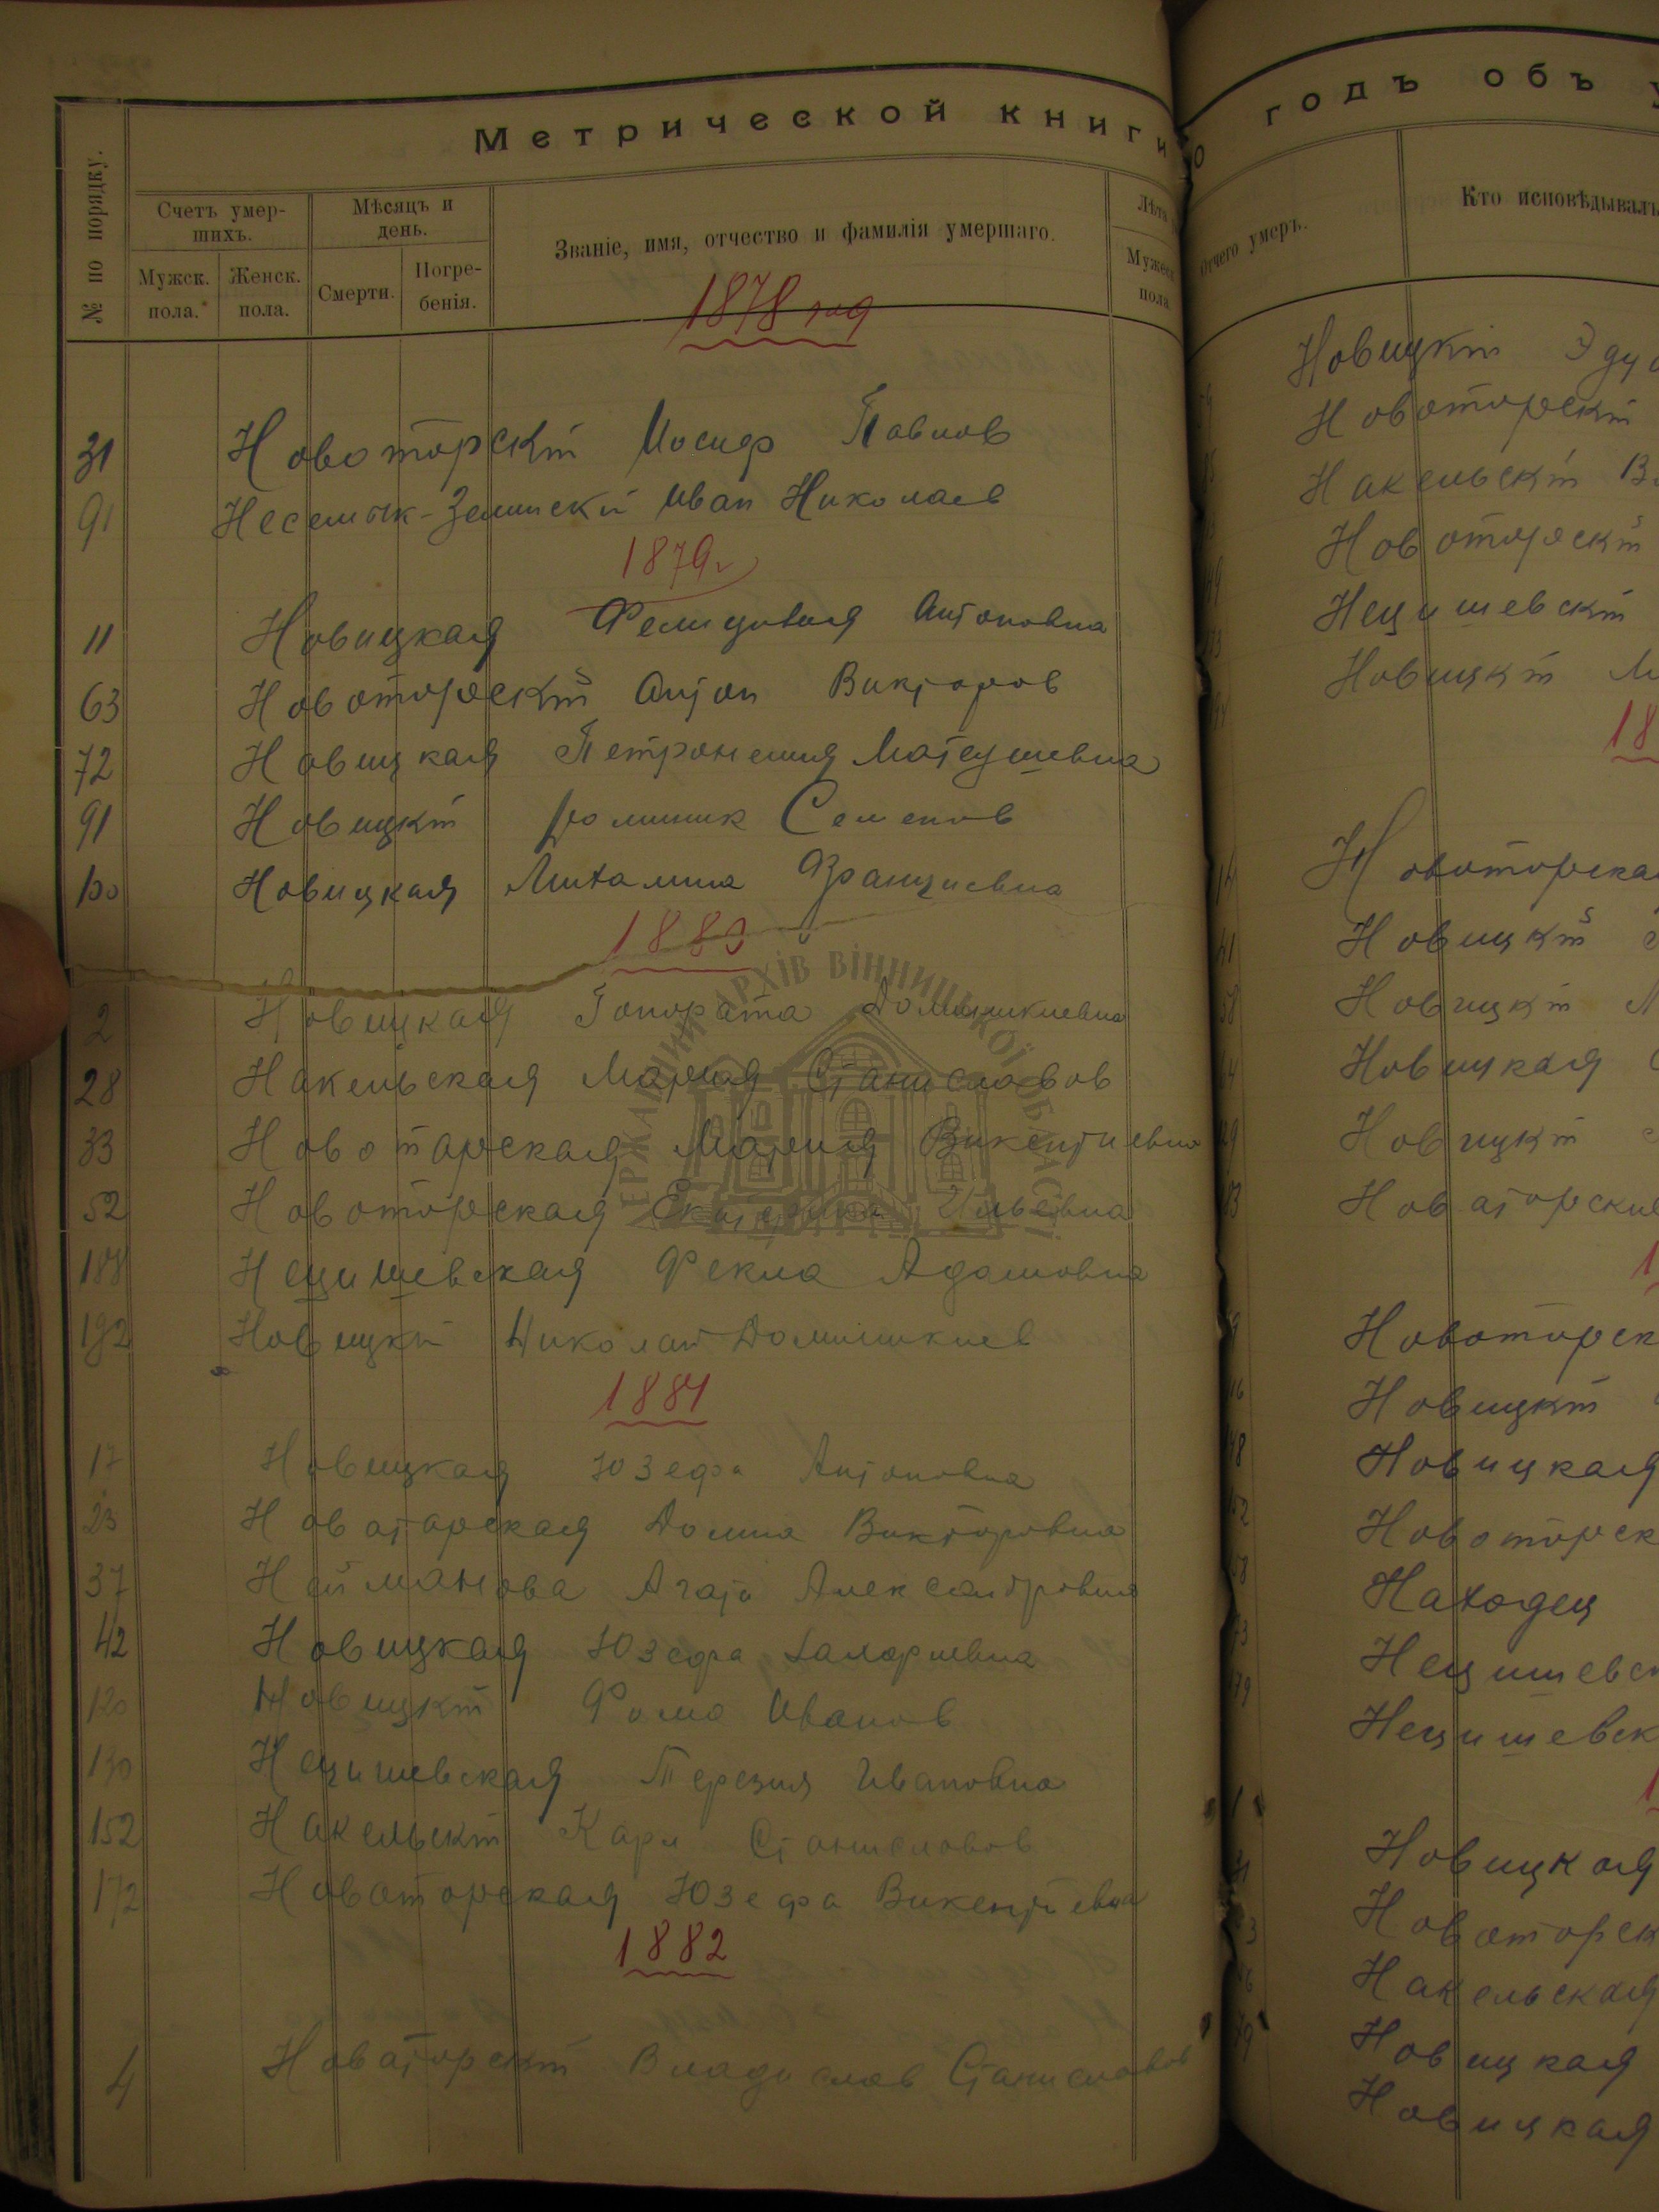 Метрической книги
годъ объ
№ по порядку.
Счетъ умер-
шихъ.
Мужск.
пола.
Женск.
пола.
Мѣсяцъ и
день.
Смерти.
Погре-
бенія.
Званіе, имя, отчество и фамилія умершаго.
Лѣта
Мужеск
пола
Отчего умеръ.
Кто исповѣдывалъ
1878 год
31 Новоторскій Иосиф Павлов
91 Иван Николаев
1879г
11 Новицкая Фелициия Антоновна
63 Новоторский Антон Викторов
72 Новицкая Петронелия Матеушевна
91 Новицкій Доминик Семенов
100 Новицкая Михалина Францисевна
1880
2 Новицкая Гонората Доминикиевна
28 Накельская Мария Станиславов
33 Новотарская Мария Викентиевна
52 Новоторская Екатерина Ильевна
188 Нецишевская Фекла Адамовна
192 Новицкій Николай Доминикиев
1881
17 Новицкая Юзефа Антоновна
23 Новатарская Домна Викторовна
37 Нейманова Агата Александровна
42 Новицкая Юзефа
120 Новицкій Фома Иванов
130 Нецишевская Терезия Ивановна
152 Накельскій Карл Станиславов
172 Новоторская Юзефа Викентиевна
1882
4 Новаторскій Владислав Станиславов
ДЕРЖАВНИЙ АРХІВ ВІННИЦЬКОЇ ОБЛАСТІ
Новицкій Эду
Новоторскій
Накельскій
Новоторскій
Нецишевскій
Новицкій
18
Новоторская
Новицкій
Новицкій
Новицкая
Новицкій
Новаторские
Новоторск
Новицкій
Новицкая
Новоторск
Находец
Нецишевск
Нецишевск
Новицкая
Новоторск
Накельская
Новицкая
Новицкая